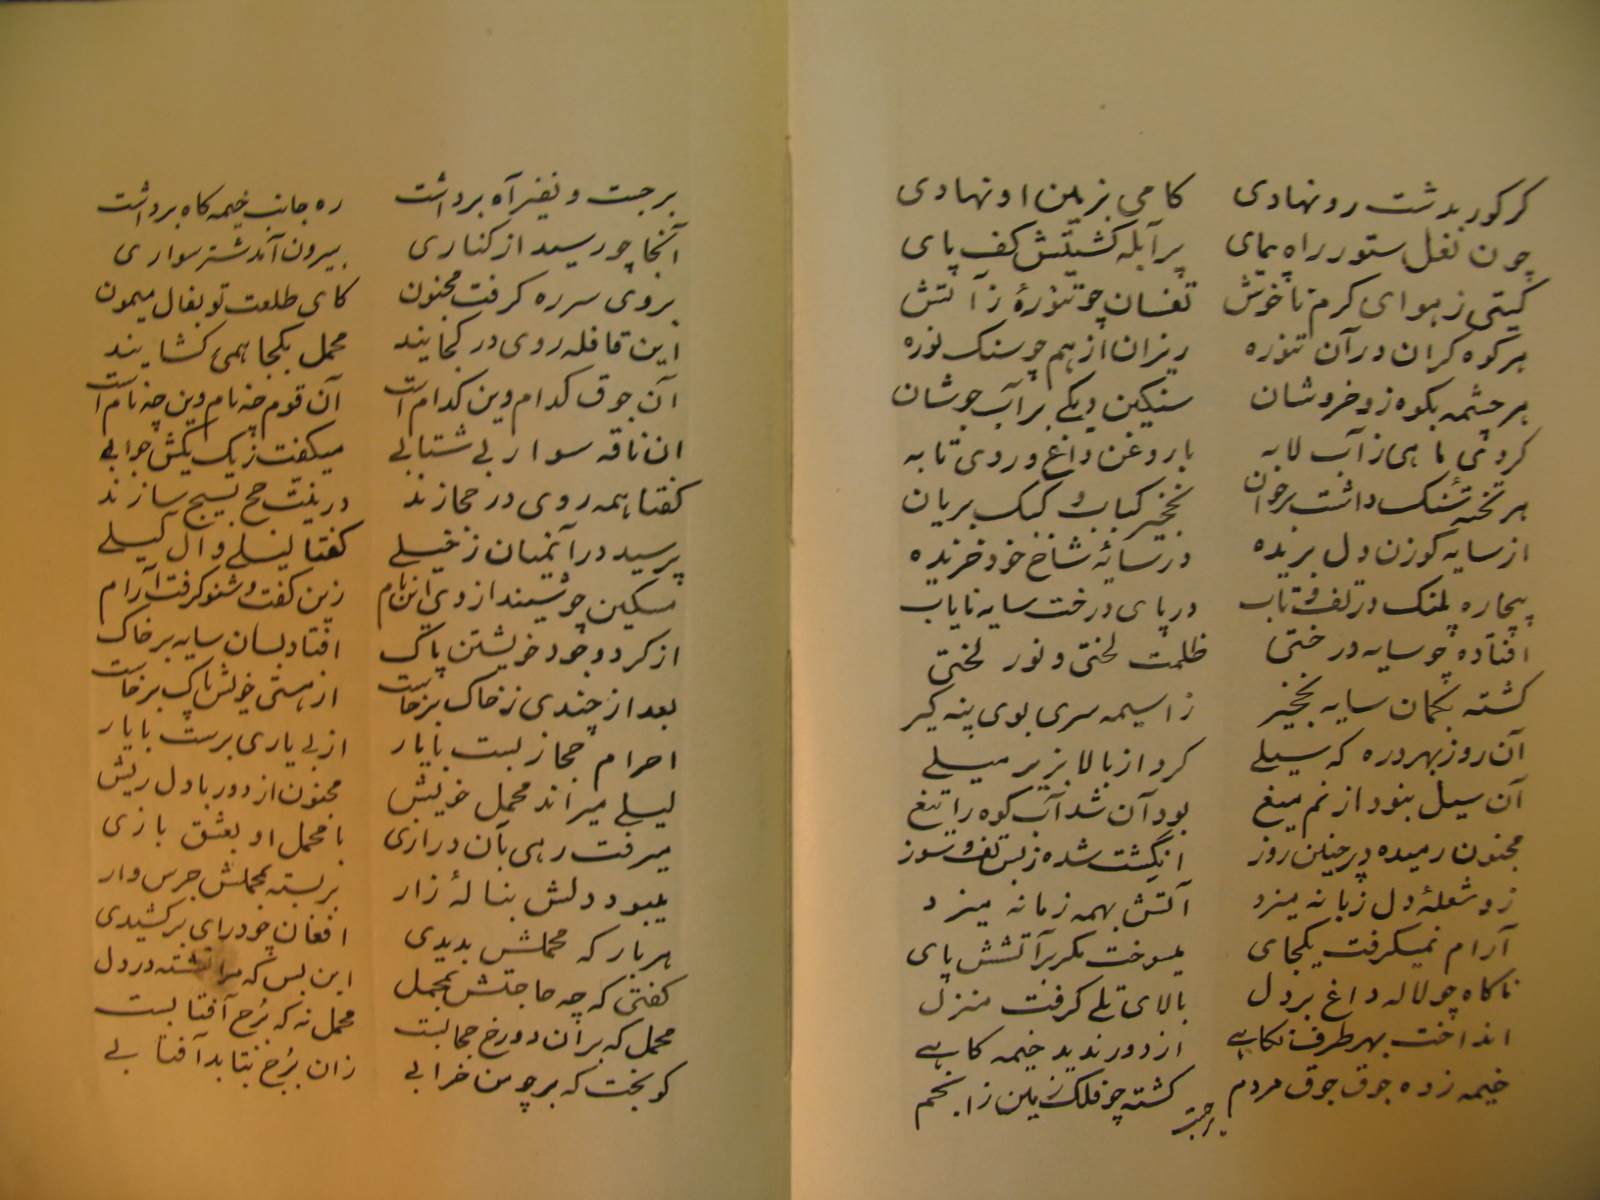 کر کور بدشت رو نهادی کامی بزمین او نهادی
چون نعل ستور راه پیمای پر آبله کشتیش کف پای
کیتی ز هوای کرم ناخوش تفسان چو تنورهٔ ز آتش
هر کوه کران در آن تنوره ریزان از هم چو سنک نوره
هر چشمه بکوه زو خروشان سنکین دیکی بر آب جوشان
کردی ماهی ز آب لابه با روغن داغ و روی تابه
هر تخته سنک داشت بر خوان نخجیر کباب و کبک بریان
از سایه کوزن دل بریده در سایهٔ شاخ خود خزیده
بیچاره پلنک در تف و تاب در پای درخت سایه نایاب
افتاده چو سایه درختی ظلمت لختی و نور لختی
کشته بکمان سایه نخجیر ز اسیمه سری بوی پنه کیر
آن روز بهر دره که سیلی کرد از بالا بزیر میلی
آن سیل نبود از نم میغ بود آن شد آب کوه را تیغ
مجنون رمیده در چنین روز انکشت شده ز بس تف و سوز
زو شعلهٔ دل زبانه میزد آتش بهمه زمانه میزد
آرام نمیکرفت یکجای میسوخت مکر بر آتشش پای
ناکاه چو لاله داغ بر دل بالای تلی کرفت منزل
انداخت بهر طرف نکاهی از دور ندید خیمه کاهی
خیمه زده جوق جوق مردم کشته چو فلک زمین ز انجم
برجست
برجست و نفیر آه برداشت ره جانب خیمه کاه برداشت
آنجا چو رسید از کناری بیرون آمد شتر سواری
بر وی سر ره کرفت مجنون کای طلعت تو بفال میمون
این قافله روی در کجایند محمل بکجا همی کشایند
آن جوق کدام وین کدام است آن قوم چه نام وین چه نام است
ان ناقه سوار بی شتابی میکفت ز یک یکش جوابی
کفتا همه روی در حجازند در نیت حج بسیج سازند
پرسید در آنمیان ز خیلی کفتا لیلی و آل لیلی
مسکین چو شنید از وی این نام زین کفت و شنو کرفت آرام
از کرد وجود خویشتن پاک افتاد بسان سایه بر خاک
بعد از چندی ز خاک برخاست از هستی خویش پاک برخاست
احرام حجاز بست با یار از بی یاری برست با یار
لیلی میراند محمل خویش مجنون از دور با دل ریش
میرفت رهی بآن درازی با محمل او بعشق بازی
میبود دلش بنالهٔ زار بر بسته بمحملش جرس وار
هر بار که محملش بدیدی افغان چو درای بر کشیدی
کفتی که چه حاجتش بمحمل این بس که مرا نشسته در دل
محمل که بر آن دو رخ حجابست محمل نه که برج آفتابست
کو بخت که بر چو من خرابی زان برج بتابد آفتابی